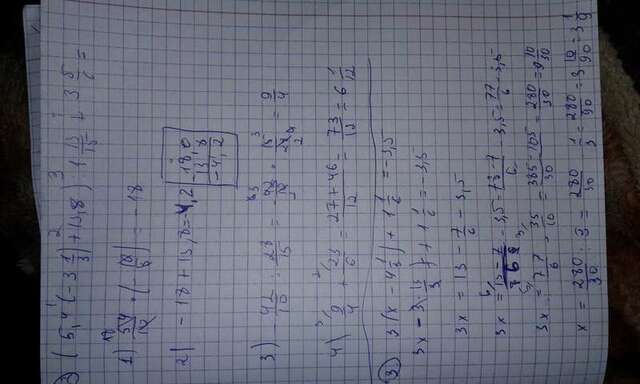 2) (5,4 (-3 1/3) + 13,8) : 1 13/15 + 3 5/6 =
1) 54/10 · (-10/3) = -18
2) -18 + 13,8 = -4,2
18,0
13 8
-4,2
3) -42/10 : 28/15 = -42/10 · 15/28 = 9/4
4) 9/4 + 23/6 = 27+46/12 = 73/12 = 6 1/12
3. 3(x - 4 1/3) + 1 1/6 = -3,5
3x - 3(13/3) + 1 1/6 = -3,5
3x = 13 - 7/6 - 3,5
3x = 13-7/6 - 3,5 = 78-7/6 - 3,5 = 77/6 - 3,5
3x = 77/6 - 35/10 = 385-105/30 = 280/30 = 9 10/30
x = 280/30 : 3 = 280/30 · 1/3 = 280/90 = 3 10/90 = 3 1/9